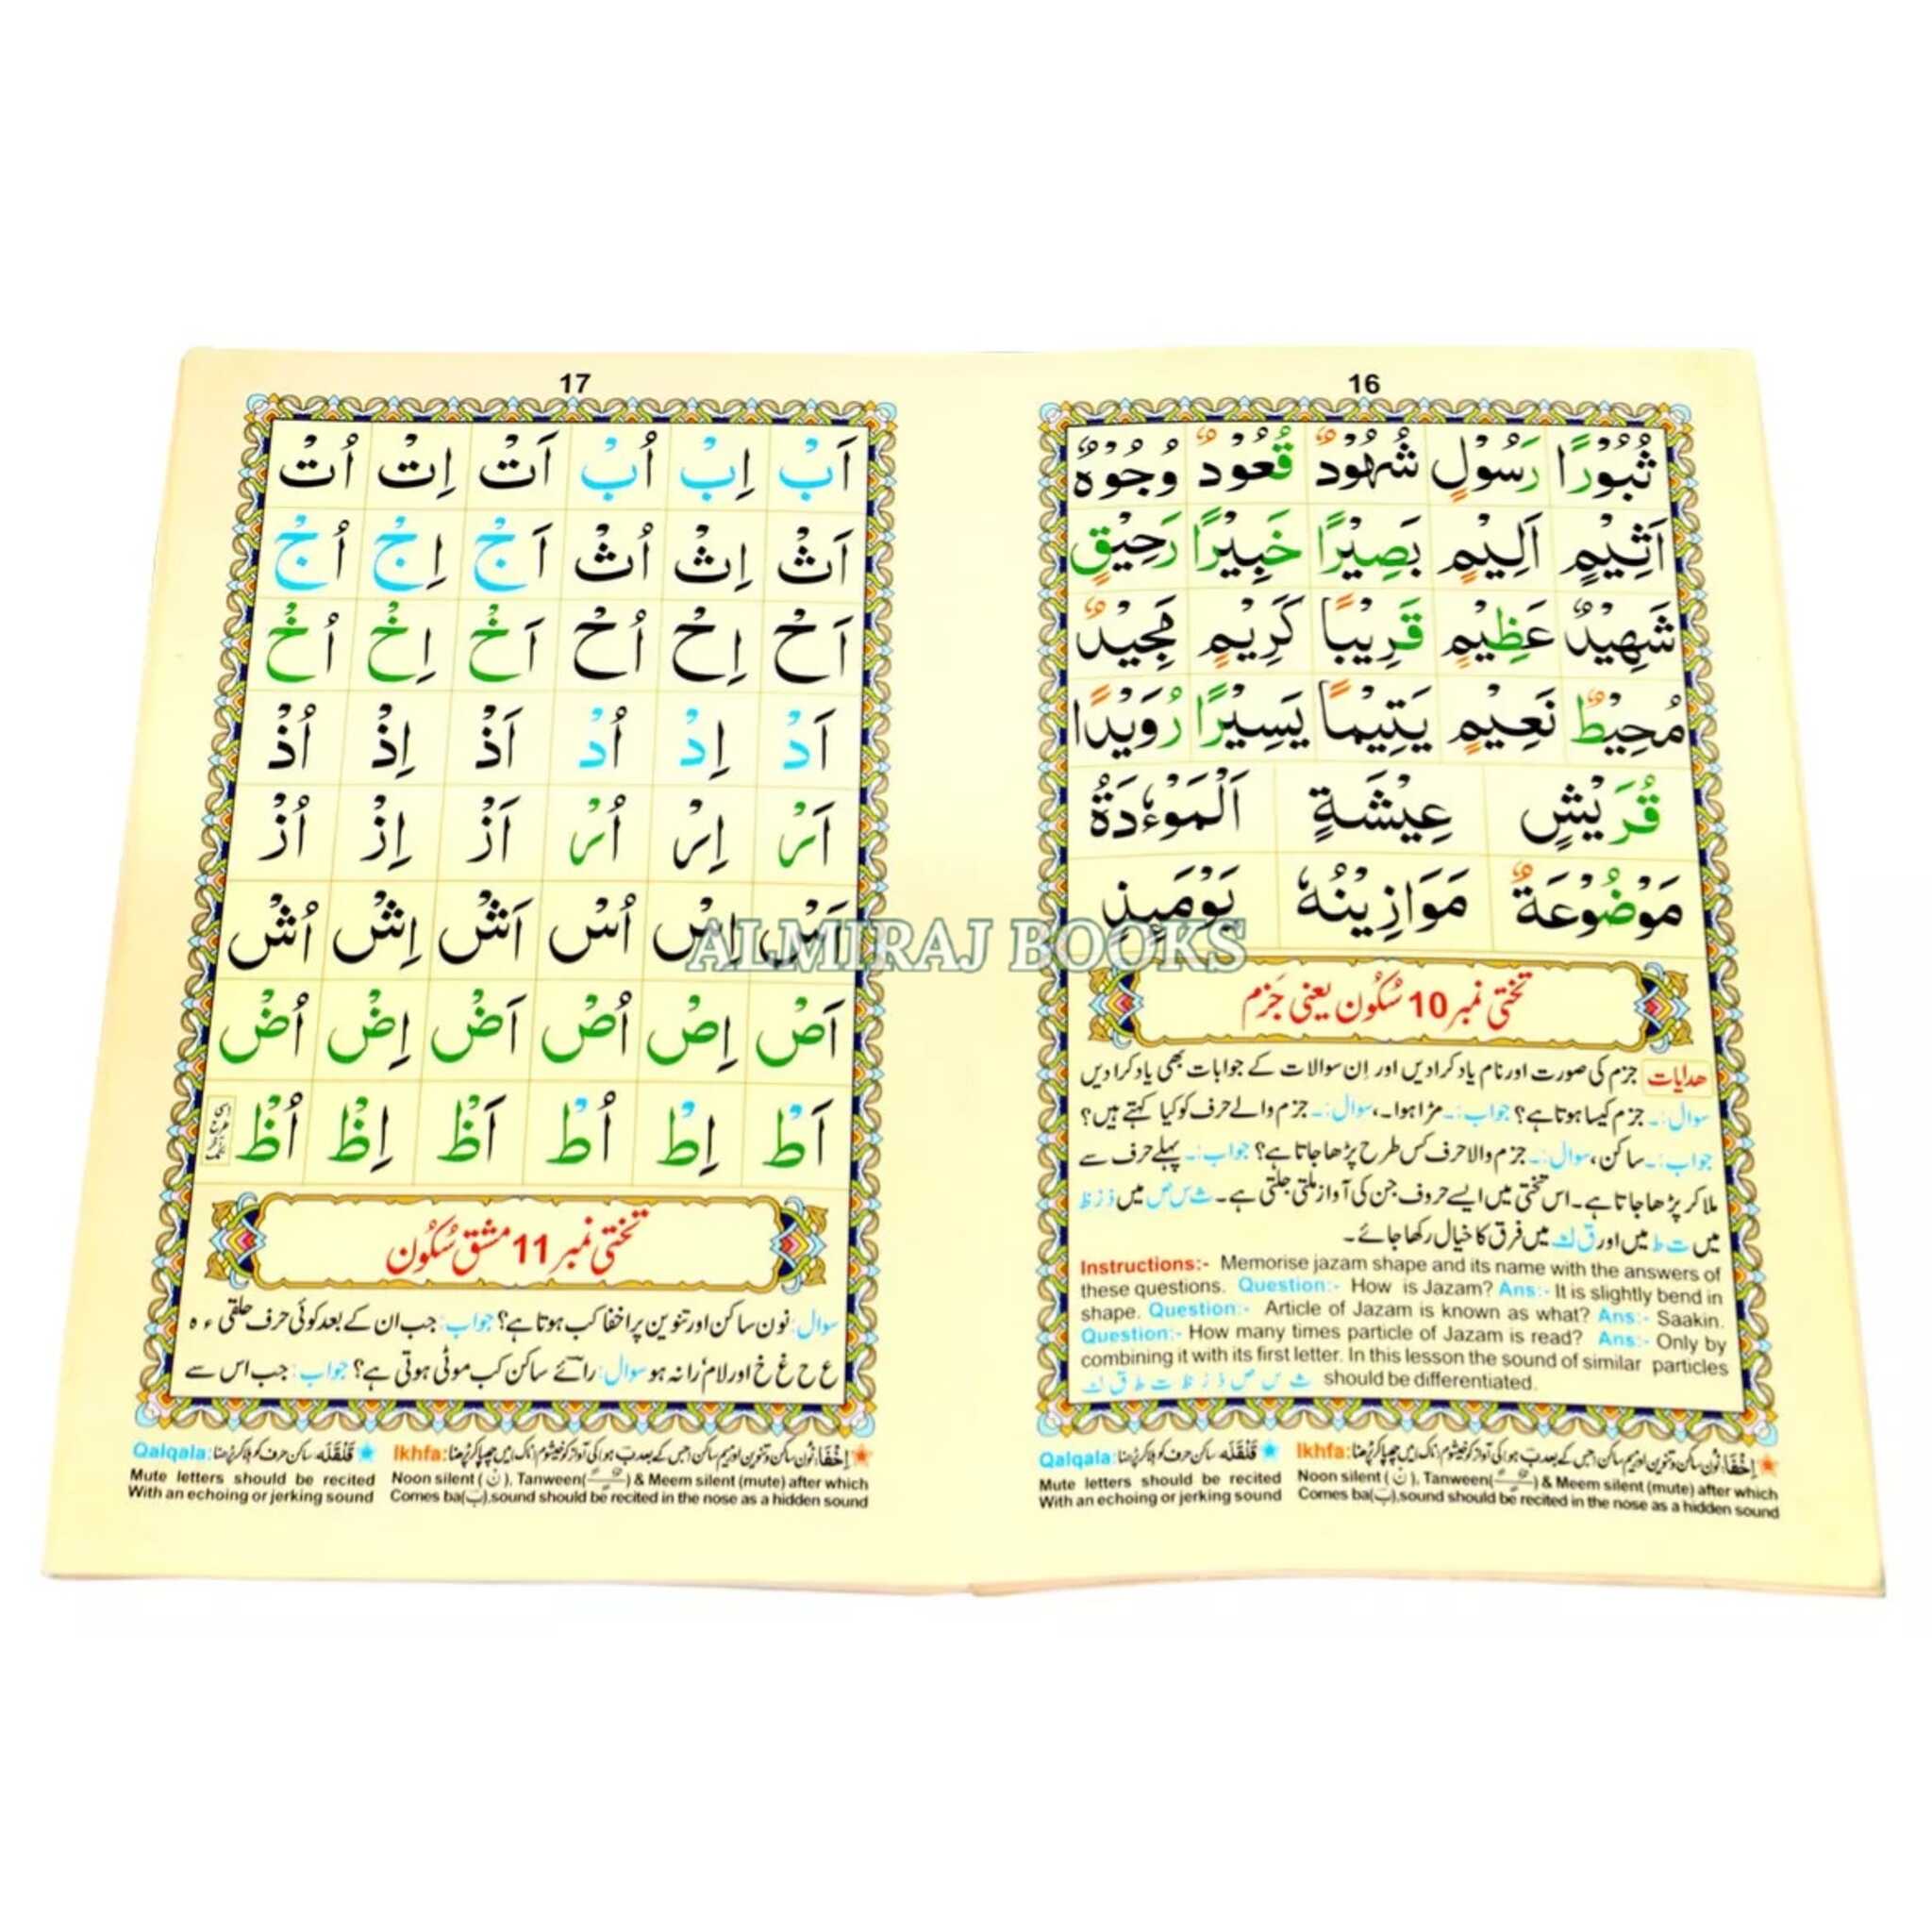 16
ثُبُوْرًا رَسُوْلٍ شُهُوْدٌ قُعُوْدٌ وُجُوْهٌ
اَثِيْمٍ اَلِيْمٍ بَصِيْرًا خَبِيْرًا رَحِيْقٍ
شَهِيْدٌ عَظِيْمٍ قَرِيْبًا كَرِيْمٍ مَجِيْدٌ
مُحِيْطٌ نَعِيْمٍ يَتِيْمًا يَسِيْرًا رُوَيْدًا
قُرَيْشٍ عِيْشَةٍ اَلْمَوْءٗدَةُ
مَوْضُوْعَةٌ مَوَازِيْنُهٗ يَوْمَىِٕذٍ
تختی نمبر 10 سُکُون یعنی جَزم
ھدایات جزم کی صورت اور نام یاد کرادیں اور اِن سوالات کے جوابات بھی یاد کرادیں
سوال:۔ جزم کیسا ہوتا ہے؟ جواب:۔ مڑا ہوا۔، سوال:۔ جزم والے حرف کو کیا کہتے ہیں؟
جواب:۔ ساکن، سوال:۔ جزم والا حرف کس طرح پڑھا جاتا ہے؟ جواب:۔ پہلے حرف سے
ملا کر پڑھا جاتا ہے۔ اس تختی میں ایسے حروف جن کی آواز ملتی جلتی ہے۔ ث س ص میں ذ ز ظ
میں ت ط میں اور ق ك میں فرق کا خیال رکھا جائے۔
Instructions:- Memorise jazam shape and its name with the answers of
these questions. Question:- How is Jazam? Ans:- It is slightly bend in
shape. Question:- Article of Jazam is known as what? Ans:- Saakin.
Question:- How many times particle of Jazam is read? Ans:- Only by
combining it with its first letter. In this lesson the sound of similar particles
ث س ص ذ ز ظ ت ط ق ك should be differentiated.
Qalqala: قَلْقَلَه ساکن حرف کو ہلا کر پڑھنا
Mute letters should be recited
With an echoing or jerking sound
Ikhfa: اِخْفَا: نون ساکن و تنوین اور میم ساکن جس کے بعد ب ہو اُن کی آواز کو خیشوم (ناک) میں چھپا کر پڑھنا
Noon silent (ن), Tanween( ) & Meem silent (mute) after which
Comes ba(ب),sound should be recited in the nose as a hidden sound
17
اَبْ اِبْ اُبْ اَتْ اِتْ اُتْ
اَثْ اِثْ اُثْ اَجْ اِجْ اُجْ
اَحْ اِحْ اُحْ اَخْ اِخْ اُخْ
اَدْ اِدْ اُدْ اَذْ اِذْ اُذْ
اَرْ اِرْ اُرْ اَزْ اِزْ اُزْ
اَسْ اِسْ اُسْ اَشْ اِشْ اُشْ
اَصْ اِصْ اُصْ اَضْ اِضْ اُضْ
اَطْ اِطْ اُطْ اَظْ اِظْ اُظْ
تختی نمبر 11 مشق سُکُون
سوال: نون ساکن اور تنوین پر اخفا کب ہوتا ہے؟ جواب: جب ان کے بعد کوئی حرف حلقی ء ہ
ع ح غ خ اور لام’ را نہ ہو سوال: رائے ساکن کب موٹی ہوتی ہے؟ جواب: جب اس سے
Qalqala: قَلْقَلَه ساکن حرف کو ہلا کر پڑھنا
Mute letters should be recited
With an echoing or jerking sound
Ikhfa: اِخْفَا: نون ساکن و تنوین اور میم ساکن جس کے بعد ب ہو اُن کی آواز کو خیشوم (ناک) میں چھپا کر پڑھنا
Noon silent (ن), Tanween( ) & Meem silent (mute) after which
Comes ba(ب),sound should be recited in the nose as a hidden sound
ALMIRAJ BOOKS